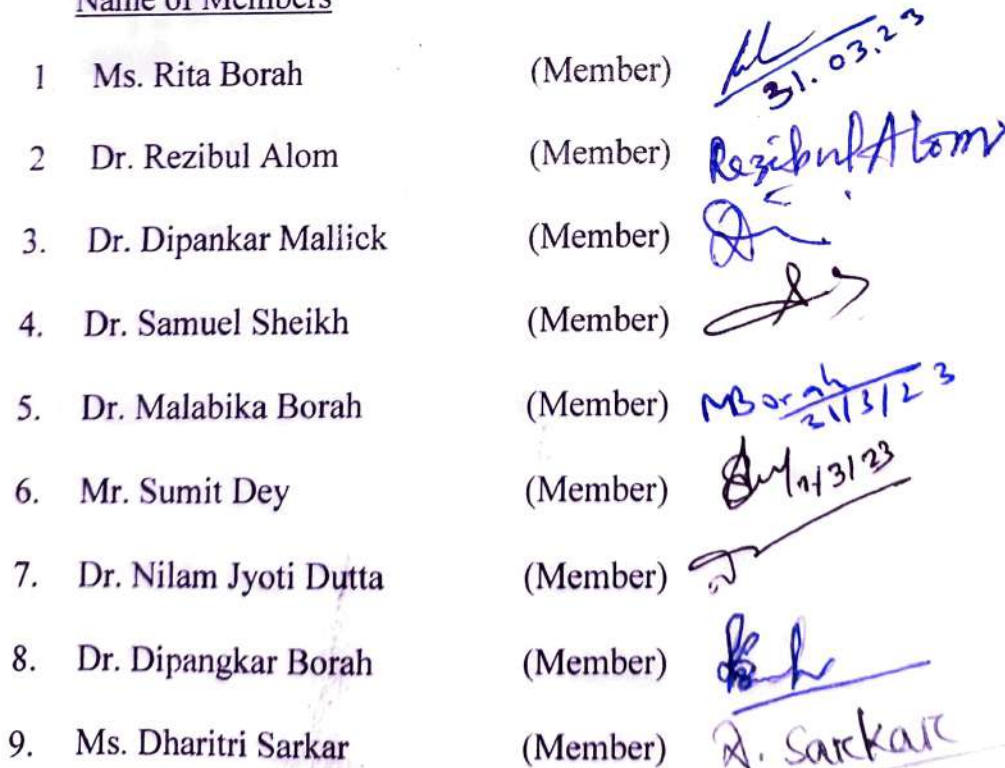 Name of Members
1 Ms. Rita Borah (Member)
31.03.23
2 Dr. Rezibul Alom (Member) Rezibul Alom
3. Dr. Dipankar Mallick (Member)
4. Dr. Samuel Sheikh (Member)
5. Dr. Malabika Borah (Member) MBorah
31/3/23
6. Mr. Sumit Dey (Member)
7. Dr. Nilam Jyoti Dutta (Member)
8. Dr. Dipangkar Borah (Member)
9. Ms. Dharitri Sarkar (Member) D. Sarkar